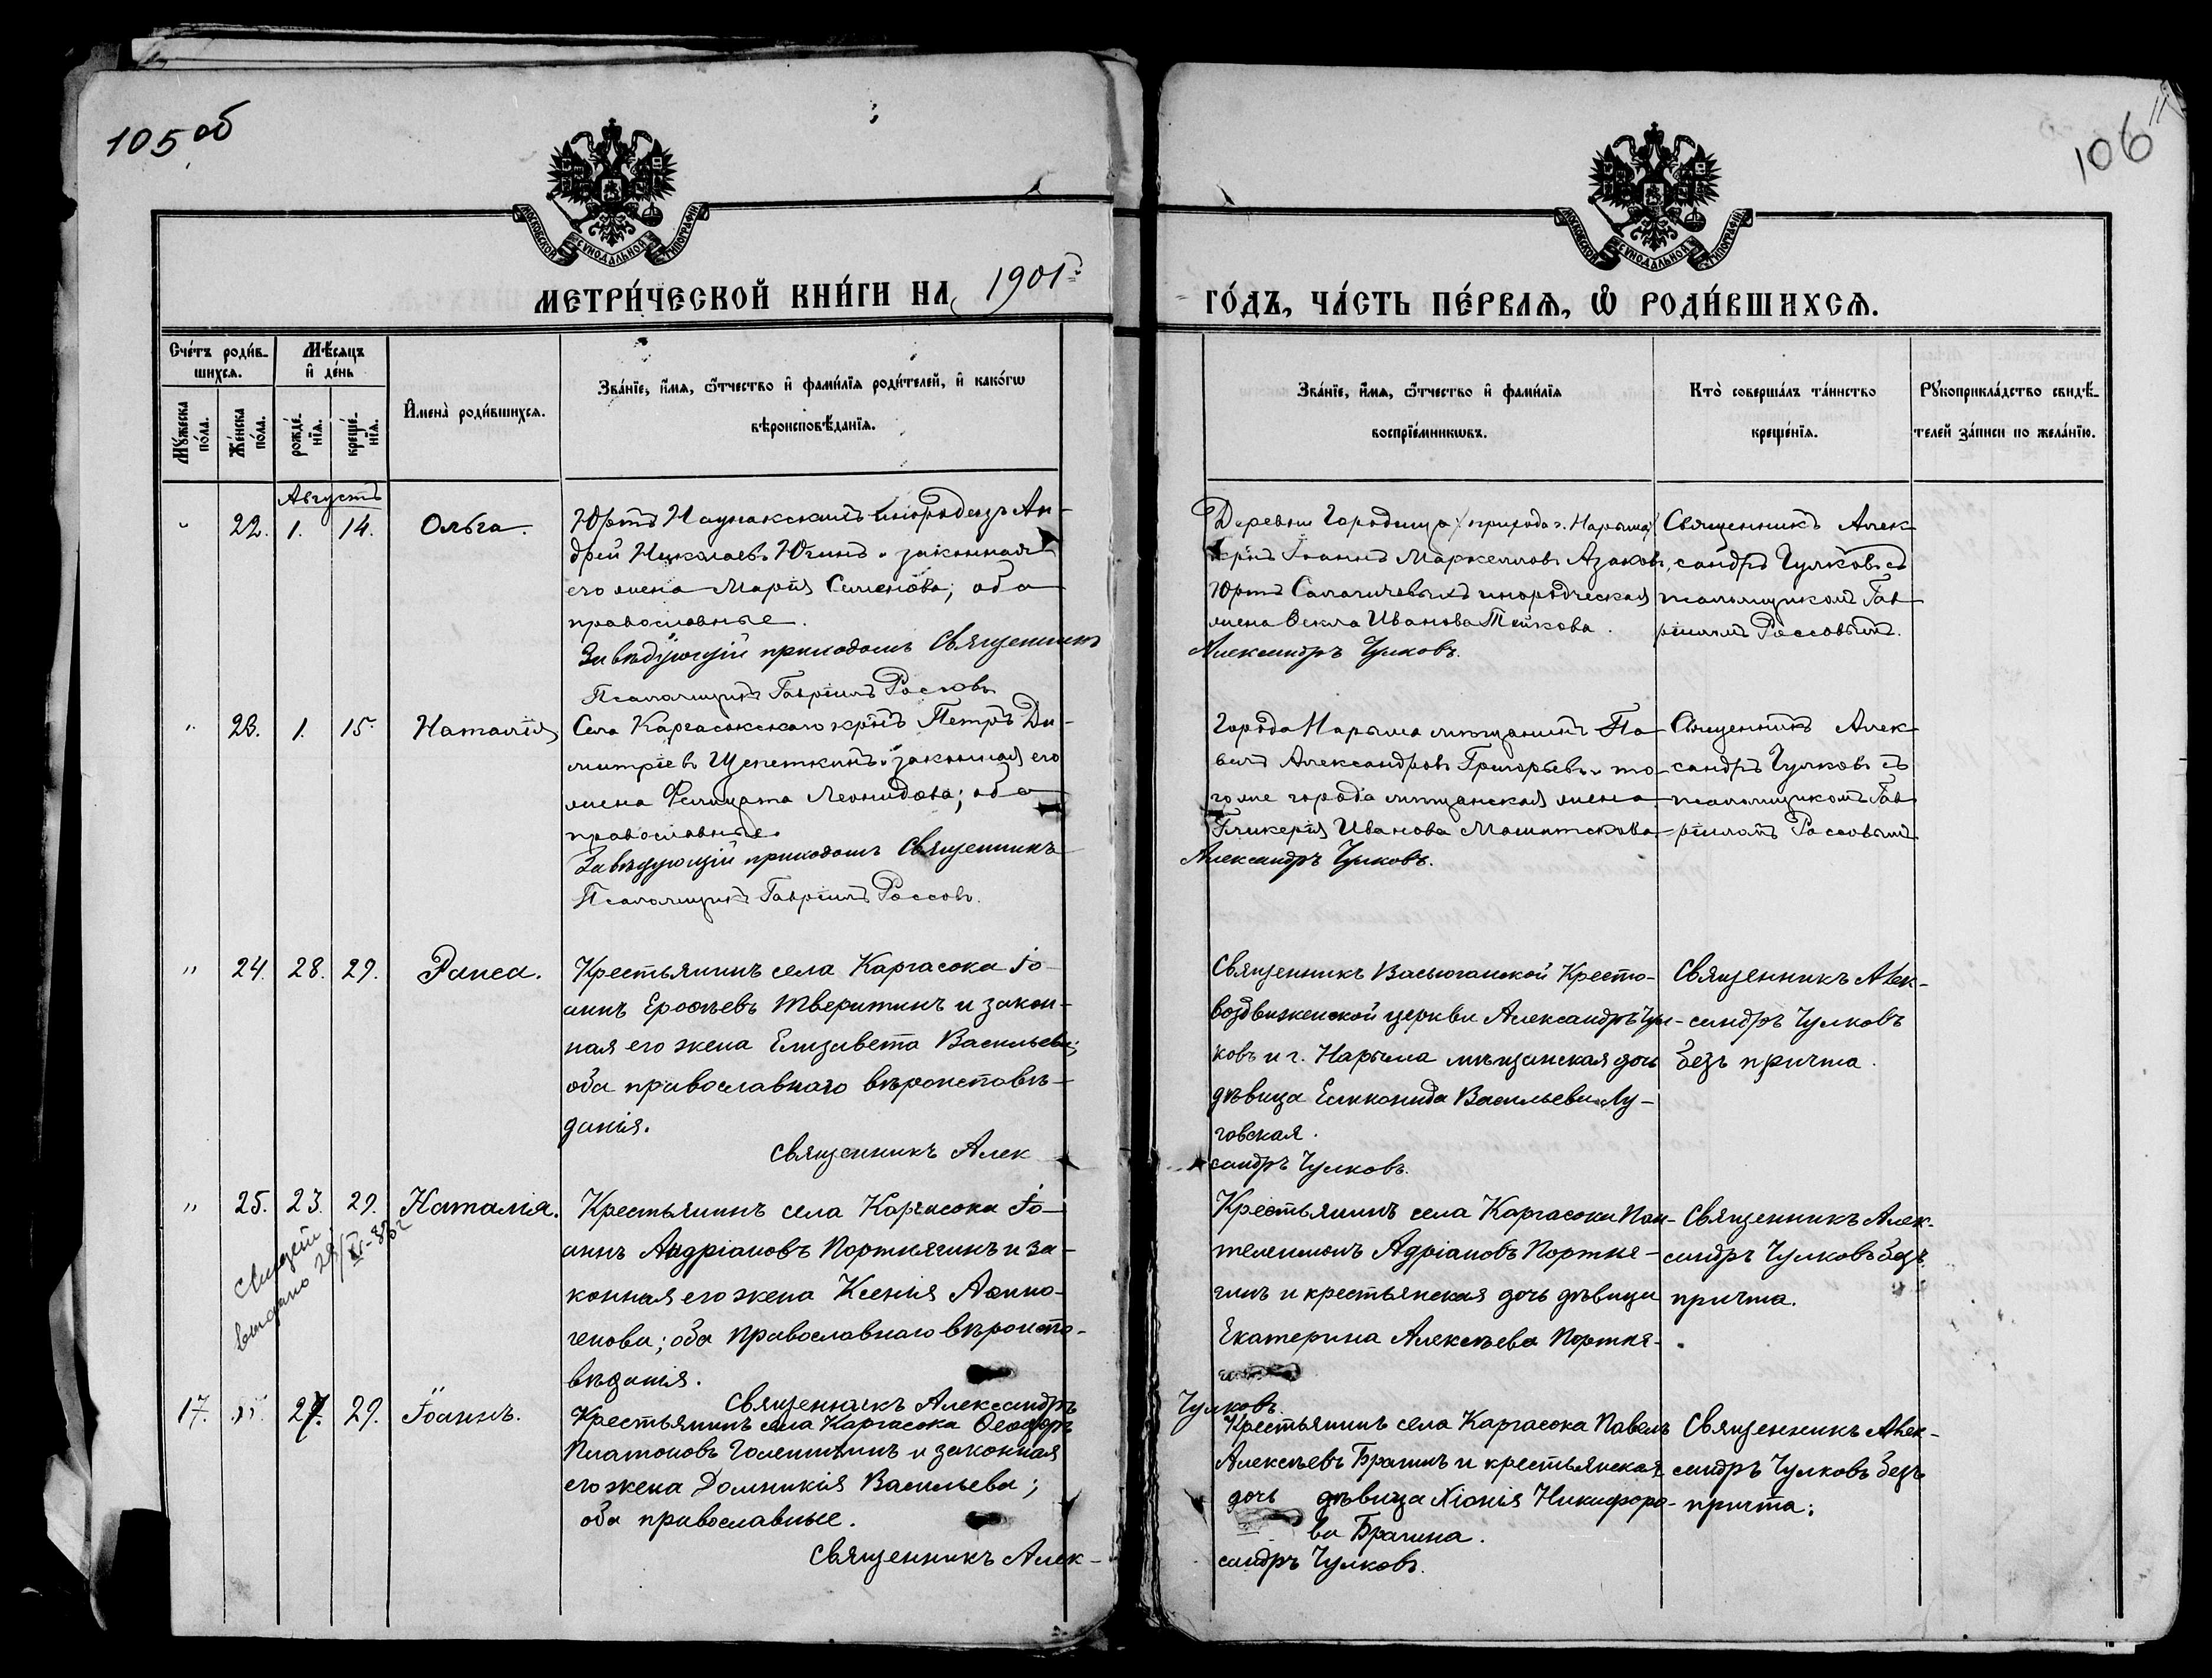 105 об
106
МОСКОВСКОЙ СѴНОДАЛЬНОЙ ТИПОГРАФІИ
МОСКОВСКОЙ СѴНОДАЛЬНОЙ ТИПОГРАФІИ
МЕТРИ́ЧЕСКОЙ КНИ́ГИ НА 1901
ГО́ДЪ, ЧА́СТЬ ПЕ́РВАѦ, Ѽ РОДИ́ВШИХСѦ.
Сче́тъ роди́в-
шихсѧ.
Мѣ́сяцъ
и҆ де́нь
Мꙋ́жеска
по́ла.
Же́нска
по́ла.
рожде́-
нїѧ.
креще́-
нїѧ.
И҆мена̀ роди́вшихсѧ.
Зва́нїе, и҆́мѧ, ѻ҆́тчество и҆ фами́лїѧ роди́телей, и҆ како́гѡ
вѣроисповѣ́данїѧ.
Зва́нїе, и҆́мѧ, ѻ҆́тчество и҆ фами́лїѧ
воспрїе́мникѡвъ.
Кто̀ соверша́лъ та́инство
креще́нїѧ.
Рꙋкоприкла́дство свидѣ́-
телей за́писи по жела́нїю.
Августъ
" 22. 1. 14. Ольга.
Юртъ Наунакскихъ инородецъ Ан-
дрей Николаевъ Югинъ и законная
его жена Марія Семенова; оба
православные.
Завѣдующій приходомъ Священникъ
Псаломщикъ Гавріилъ Россовъ
Деревни Городища /прихода г. Нарыма/
крнъ Іоаннъ Маркелловъ Азаковъ,
Юртъ инородческая
жена Ѳекла Иванова .
Александръ Чулковъ.
Священникъ Алек-
сандръ Чулковъ съ
псаломщикомъ Гав-
ріиломъ Россовымъ.
" 23. 1. 15. Наталія
Села Каргасокскаго крнъ Петръ Ди-
митріевъ Щепеткинъ и законная его
жена Фелицата Леонидова; оба
православные.
Завѣдующій приходомъ Священникъ
Псаломщикъ Гавріилъ Россовъ.
Города Нарыма мѣщанинъ Па-
велъ Александровъ Григорьевъ и то-
го же города мѣщанская жена
Гликерія Иванова
Александръ Чулковъ.
Священникъ Алек-
сандръ Чулковъ съ
псаломщикомъ Гав-
ріиломъ Россовымъ
" 24. 28. 29. Раиса.
Крестьянинъ села Каргасока Іо-
аннъ Ероѳеевъ Тверитинъ и закон-
ная его жена Елизавета Васильева;
оба православнаго вѣроисповѣ-
данія.
Священникъ Алек
Священникъ Васюганской Кресто-
воздвиженской церкви Александръ Чул-
ковъ и г. Нарыма мѣщанская дочь
дѣвица Еликонида Васильева Лу-
говская.
сандръ Чулковъ.
Священникъ Алек-
сандръ Чулковъ
безъ причта.
" 25. 23. 29. Наталія.
Свидѣт.
выдано 28/IV-83г
Крестьянинъ села Каргасока Іо-
аннъ Андріановъ Портнягинъ и за-
конная его жена Ксенія Аѳино-
генова; оба православнаго вѣроиспо-
вѣданія.
Священникъ Александръ
Крестьянинъ села Каргасока Пан-
телеимонъ Адріановъ Портня-
гинъ и крестьянская дочь дѣвица
Екатерина Алексѣева Портня-
Чулковъ.
Священникъ Алек-
сандръ Чулковъ безъ
причта.
17. " 27. 29. Іоаннъ.
Крестьянинъ села Каргасока Ѳеодоръ
Платоновъ Голещихинъ и законная
его жена Домникія Васильева;
оба православные.
Священникъ Алек-
Крестьянинъ села Каргасока Павелъ
Алексѣевъ Брагинъ и крестьянская
дочь дѣвица Хіонія Никифоро-
ва Брагина.
сандръ Чулковъ.
Священникъ Алек-
сандръ Чулковъ безъ
причта.